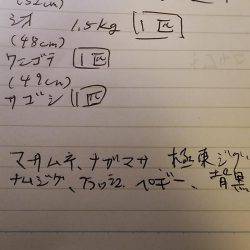 (52cm)
シオ 1.5kg 1匹
(48cm)
ワニゴチ 1匹
(49cm)
サゴシ 1匹
マサムネ、ナガマサ、極東ジグ、
ナムジグ、 ペギー、背黒